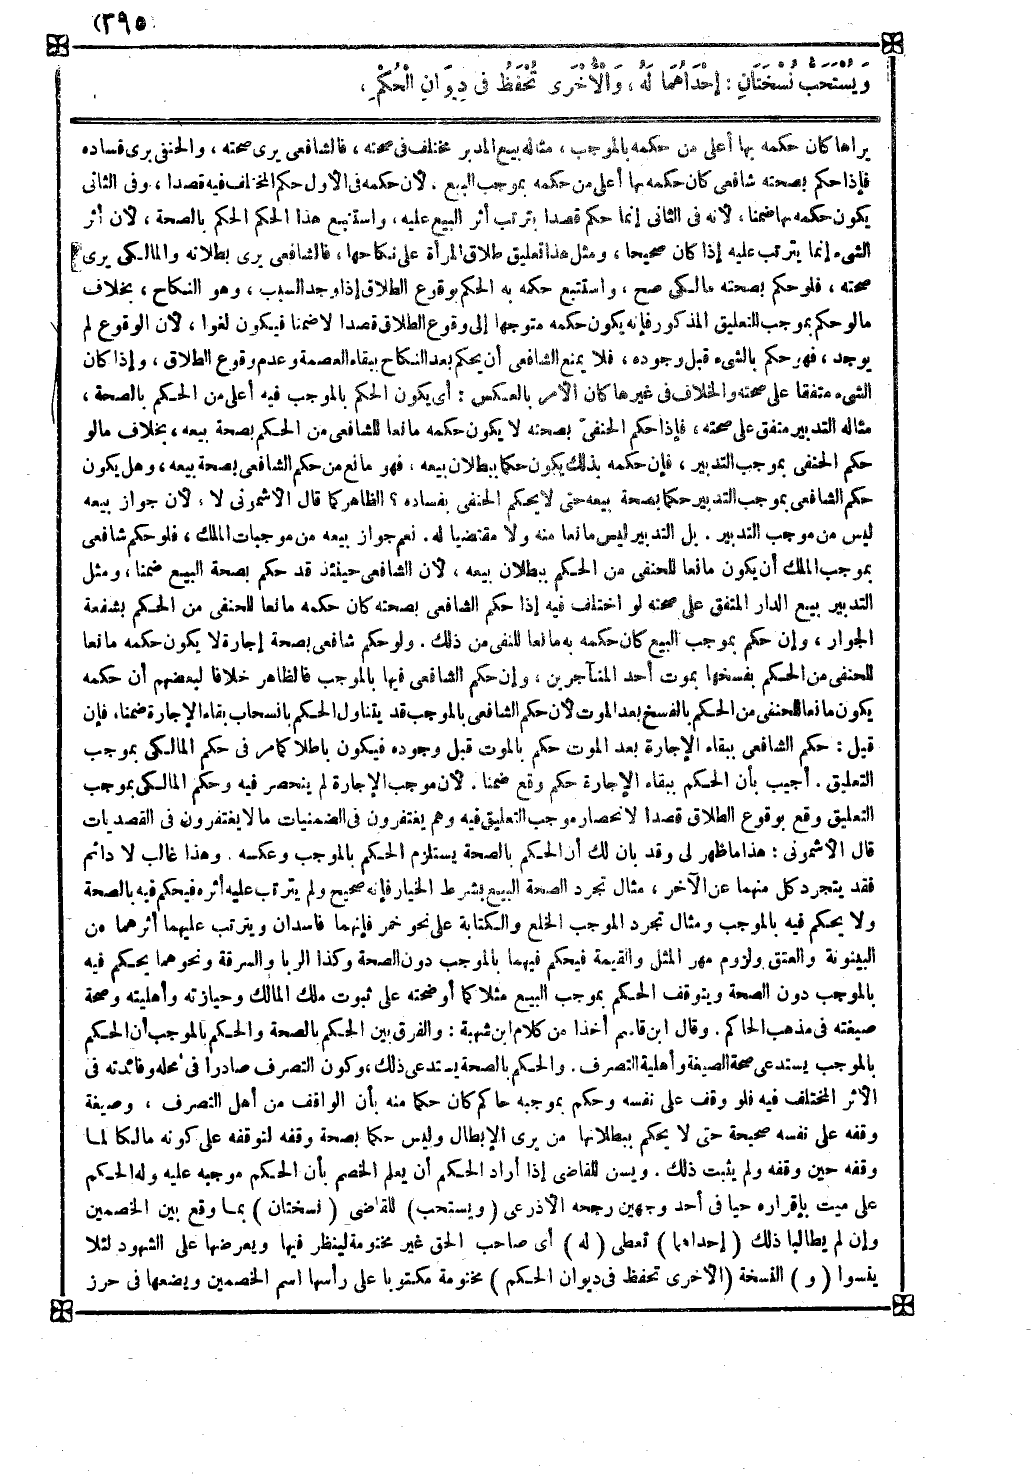 (٣٩٥)
وَيُسْتَحَبُّ نُسْخَتَانِ : إِحْدَاهُمَا لَهُ ، وَالْأُخْرَى تُحْفَظُ فى دِيوَانِ الْحُكْمِ ،
يراها كان حكمه بها أعلى من حكمه بالموجب ، مثاله بيع المدبر مختلف فى صحته ، فالشافعى يرى صحته ، والحنفى يرى فساده
فإذا حكم بصحته شافعى كان حكمه بها أعلى من حكمه بموجب البيع . لأن حكمه فى الأول حكم المخلف فيه قصدا ، وفى الثانى
يكون حكمه بها ضمنا ، لأنه فى الثانى إنما حكم قصدا بترتب أثر البيع عليه ، واستتبع هذا الحكم الحكم بالصحة ، لأن أثر
الشىء إنما يترتب عليه إذا كان صحيحا ، ومثل هذا تعليق طلاق المرأة على نكاحها ، فالشافعى يرى بطلانه والمالكى يرى
صحته ، فلو حكم بصحته مالكى صح ، واستتبع حكمه به الحكم بوقوع الطلاق إذا وجد السبب ، وهو النكاح ، بخلاف
مالو حكم بموجب التعليق المذكور فإنه يكون حكمه متوجها إلى وقوع الطلاق قصدا لا ضمنا فيكون لغوا ، لأن الوقوع لم
يوجد ، فهو حكم بالشىء قبل وجوده ، فلا يمنع الشافعى أن يحكم بعد النكاح ببقاء العصمة وعدم وقوع الطلاق ، وإذا كان
الشىء متفقا على صحته والخلاف فى غيرها كان الأمر بالعكس : أى يكون الحكم بالموجب فيه أعلى من الحكم بالصحة ،
مثاله التدبير متفق على صحته ، فإذا حكم الحنفى بصحته لا يكون حكمه مانعا للشافعى من الحكم بصحة بيعه ، بخلاف مالو
حكم الحنفى بموجب التدبير ، فإن حكمه بذلك يكون حكما ببطلان بيعه ، فهو مانع من حكم الشافعى بصحة بيعه ، وهل يكون
حكم الشافعى بموجب التدبير حكما بصحة بيعه حتى لا يحكم الحنفى بفساده ؟ الظاهر كما قال الأشمونى لا ، لأن جواز بيعه
ليس من موجب التدبير . بل التدبير ليس مانعا منه ولا مقتضيا له . نعم جواز بيعه من موجبات الملك ، فلو حكم شافعى
بموجب الملك أن يكون مانعا للحنفى من الحكم ببطلان بيعه ، لأن الشافعى حينئذ قد حكم بصحة البيع ضمنا ، ومثل
التدبير بيع الدار المتفق على صحته لو اختلف فيه إذا حكم الشافعى بصحته كان حكمه مانعا للحنفى من الحكم بشفعة
الجوار ، وإن حكم بموجب البيع كان حكمه به مانعا للنفى من ذلك . ولو حكم شافعى بصحة إجارة لا يكون حكمه مانعا
للحنفى من الحكم بفسخها بموت أحد المتآجرين ، وإن حكم الشافعى فيها بالموجب فالظاهر خلافا لبعضهم أن حكمه
يكون مانعا للحنفى من الحكم بالفسخ بعد الموت لأن حكم الشافعى بالموجب قد يتناول الحكم بانسحاب بقاء الإجارة ضمنا ، فإن
قيل : حكم الشافعى ببقاء الإجارة بعد الموت حكم بالموت قبل وجوده فيكون باطلا كما مر فى حكم المالكى بموجب
التعليق . أجيب بأن الحكم ببقاء الإجارة حكم وقع ضمنا . لأن موجب الإجارة لم ينحصر فيه وحكم المالكى بموجب
التعليق وقع بوقوع الطلاق قصدا لانحصار موجب التعليق فيه وهم يغتفرون فى الضمنيات مالا يغتفرون فى القصديات
قال الأشمونى : هذا ما ظهر لى وقد بان لك أن الحكم بالصحة يستلزم الحكم بالموجب وعكسه . وهذا غالب لا دائم
فقد يتجرد كل منهما عن الآخر ، مثال تجرد الصحة البيع بشرط الخيار فإنه صحيح ولم يترتب عليه أثره فيحكم فيه بالصحة
ولا يحكم فيه بالموجب ومثال تجرد الموجب الخلع والكتابة على نحو خمر فإنهما فاسدان ويترتب عليهما أثرهما من
البينونة والعتق ولزوم مهر المثل والقيمة فيحكم فيهما بالموجب دون الصحة وكذا الربا والسرقة ونحوهما يحكم فيه
بالموجب دون الصحة ويتوقف الحكم بموجب البيع مثلا كما أوضحته على ثبوت ملك المالك وحيازته وأهليته وصحة
صيغته فى مذهب الحاكم . وقال ابن قاسم أخذا من كلام ابن شهبة : والفرق بين الحكم بالصحة والحكم بالموجب أن الحكم
بالموجب يستدعى صحة الصيغة وأهلية التصرف . والحكم بالصحة يستدعى ذلك ، وكون التصرف صادرا فى محله وفائدته فى
الأثر المختلف فيه فلو وقف على نفسه وحكم بموجبه حاكم كان حكما منه بأن الواقف من أهل التصرف ، وصيغة
وقفه على نفسه صحيحة حتى لا يحكم ببطلانها من يرى الإبطال وليس حكما بصحة وقفه لتوقفه على كونه مالكا لما
وقفه حين وقفه ولم يثبت ذلك . ويسن للقاضى إذا أراد الحكم أن يعلم الخصم بأن الحكم موجبه عليه وله الحكم
على ميت بإقراره حيا فى أحد وجهين رجحه الأذرعى ( ويستحب ) للقاضى ( نسختان ) بما وقع بين الخصمين
وإن لم يطالبا ذلك ( إحداهما ) تعطى ( له ) أى صاحب الحق غير مختومة لينظر فيها ويعرضها على الشهود لئلا
ينسوا ( و ) النسخة ( الأخرى تحفظ فى ديوان الحكم ) مختومة مكتوبا على رأسها اسم الخصمين ويضعها فى حرز